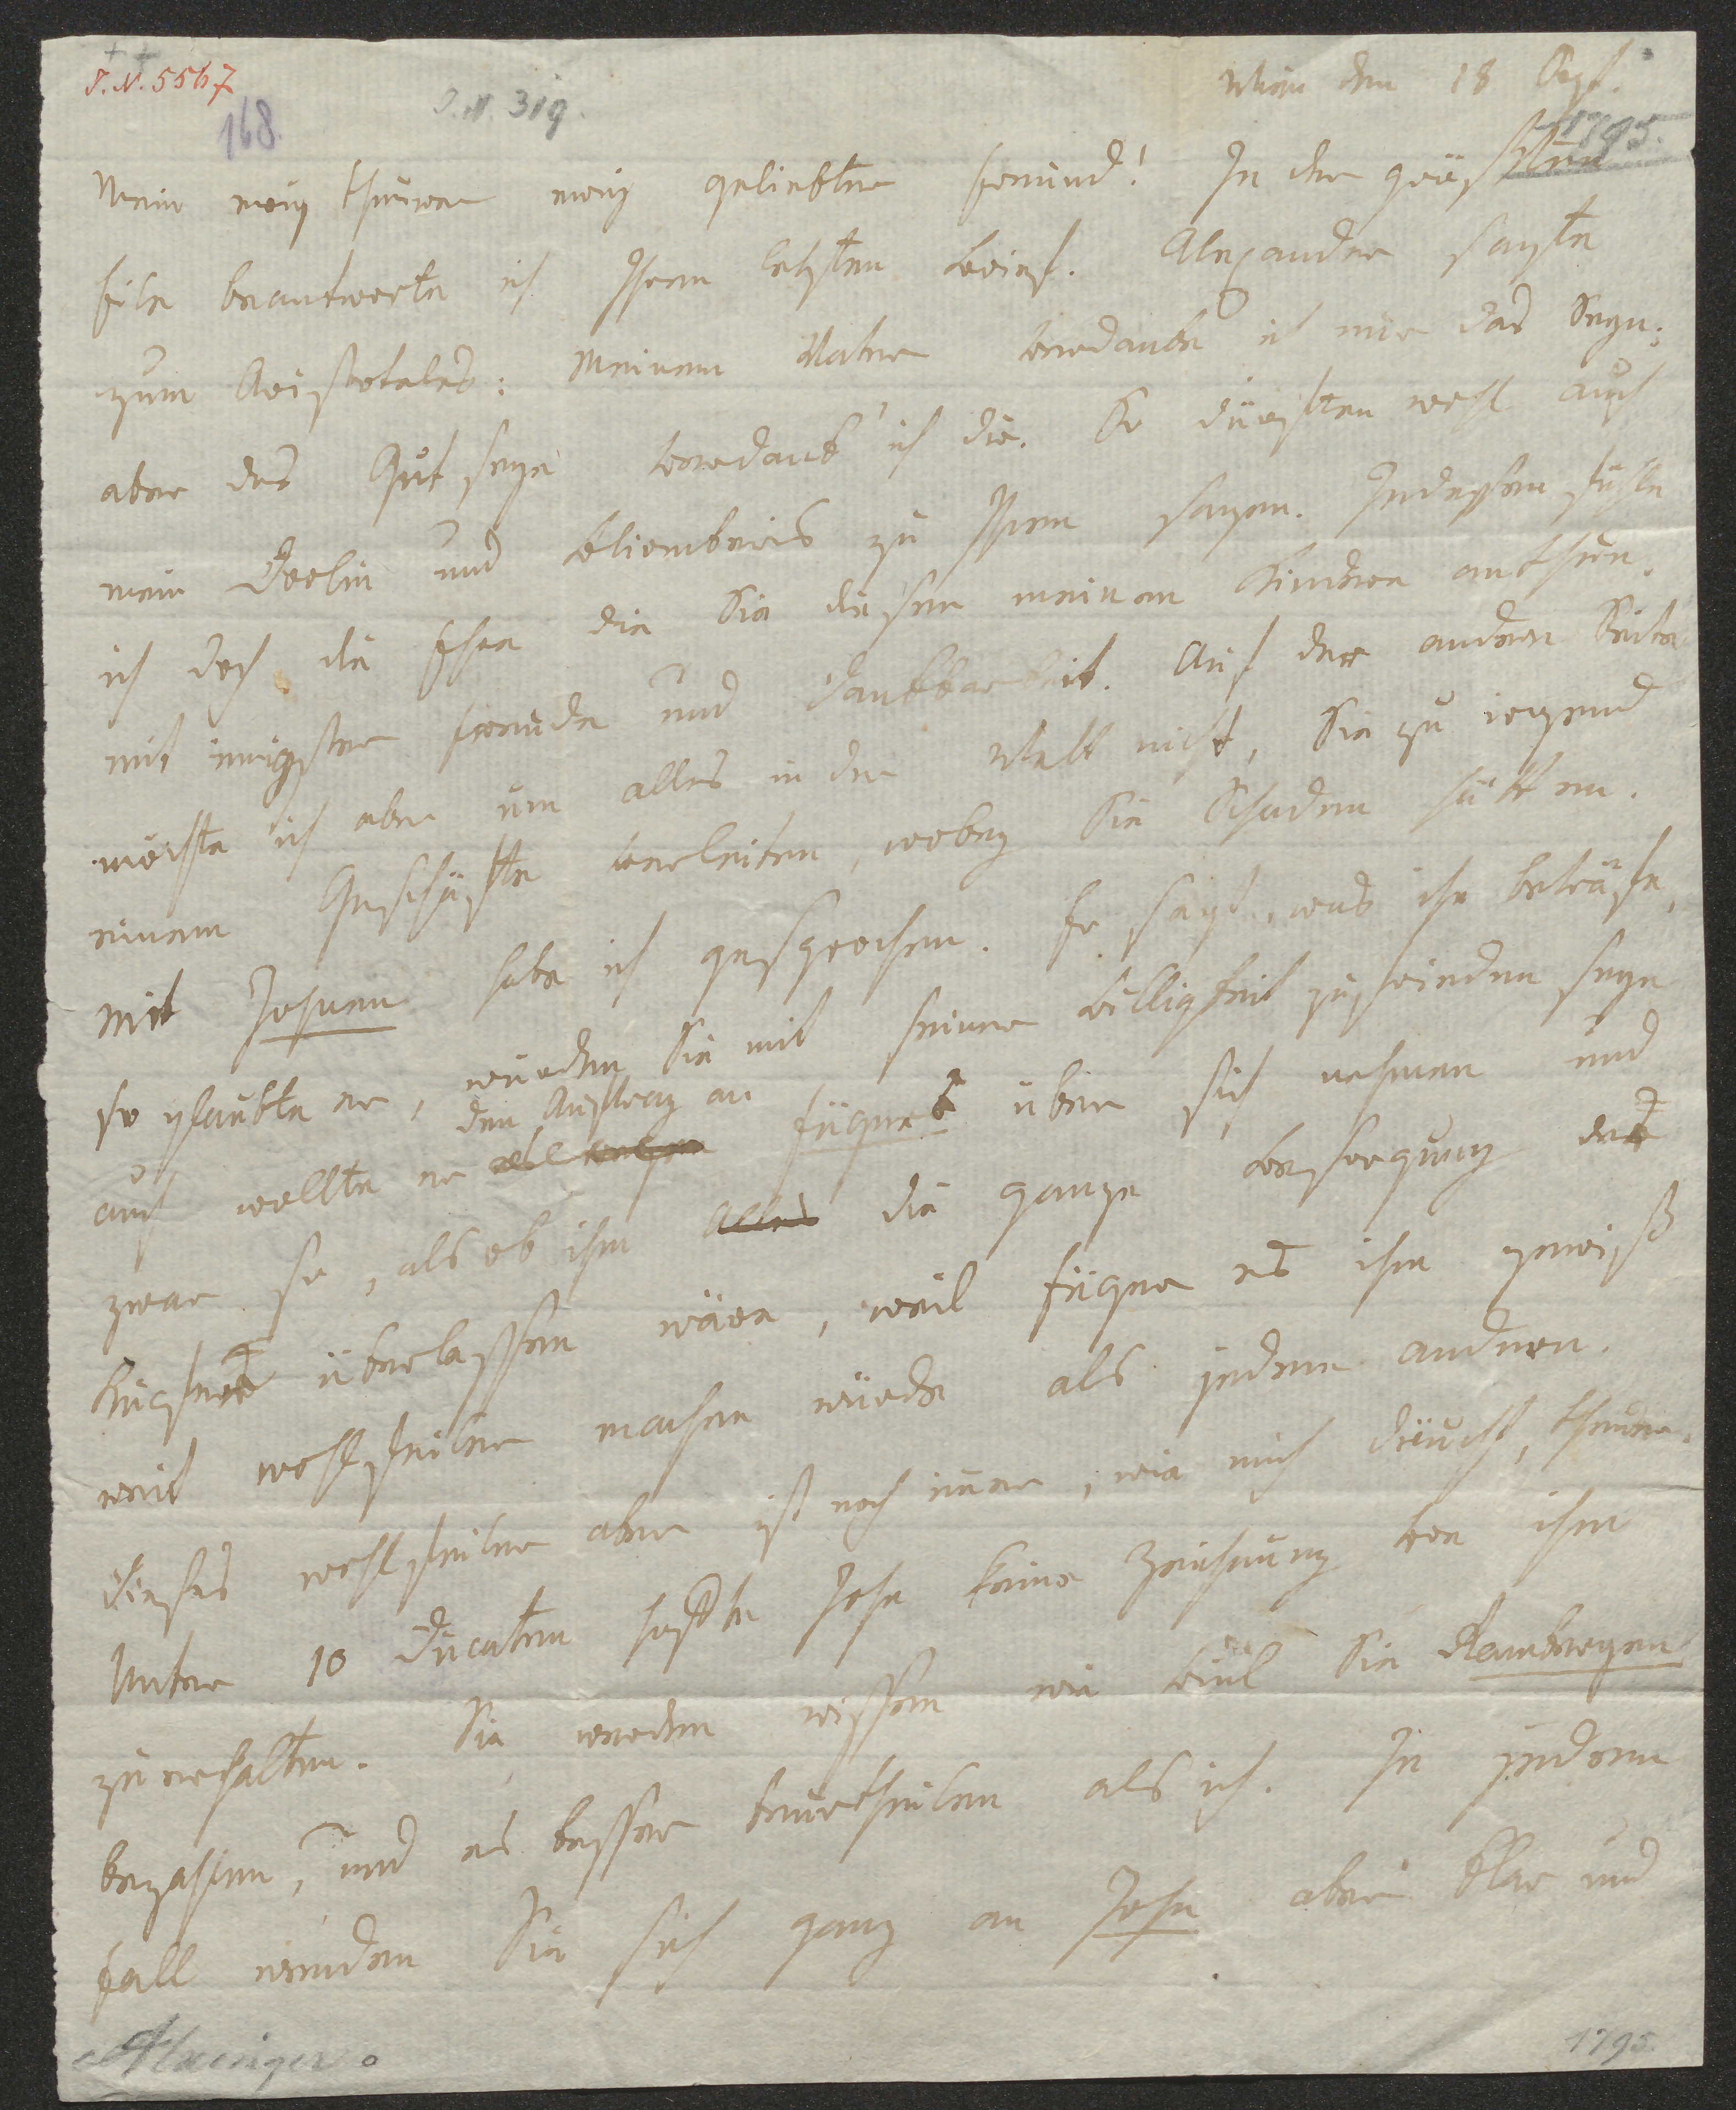 I.N. 5567
168.
I.N. 319.
Wien den 18 Sept.
1795.
Mein ewig theurer ewig geliebter Freund! In der größten
Eile beantworte ich Ihren letzten Brief. Alexander sagte
zum Aristoteles: Meinem Vater verdanke ich nur das Seyn;
aber das Gut seyn verdank' ich dir. So dürften wohl auch
mein Doolin und Bliomberis zu Ihnen sagen. Indessen fühle
ich doch die Ehre die Sie diesen meinen Kindern anthun.
mit innigster Freude und Dankbarkeit. Auf der andern Seite
möchte ich aber um alles in der Welt nicht, Sie zu irgend
einem Geschäfte verleiten, wobey Sie Schaden hätten.
Mit Johnen habe ich gesprochen. Er sagt, was ihn beträfe,
so glaubte er, würden Sie mit seiner Billigkeit zufrieden seyn
den Auftrag an
auch wollte er Fügner über sich nehmen und
zwar so, als ob ihm alles die ganze Besorgung der
Kupfer überlassen wäre, weil Fügner es ihm gewiß
weit wohlfeiler machen würde als jedem andern.
Dieses wohlfeiler aber ist noch immer, wie mich däucht, theuer.
Unter 10 Ducaten hoffte John keine Zeichnung von ihm
zu erhalten. Sie werden wissen wie viel Sie Rambergen
bezahlen, und es besser beurtheilen als ich. In jedem
Fall wenden Sie sich ganz an John aber klar und
Alxinger
1795.